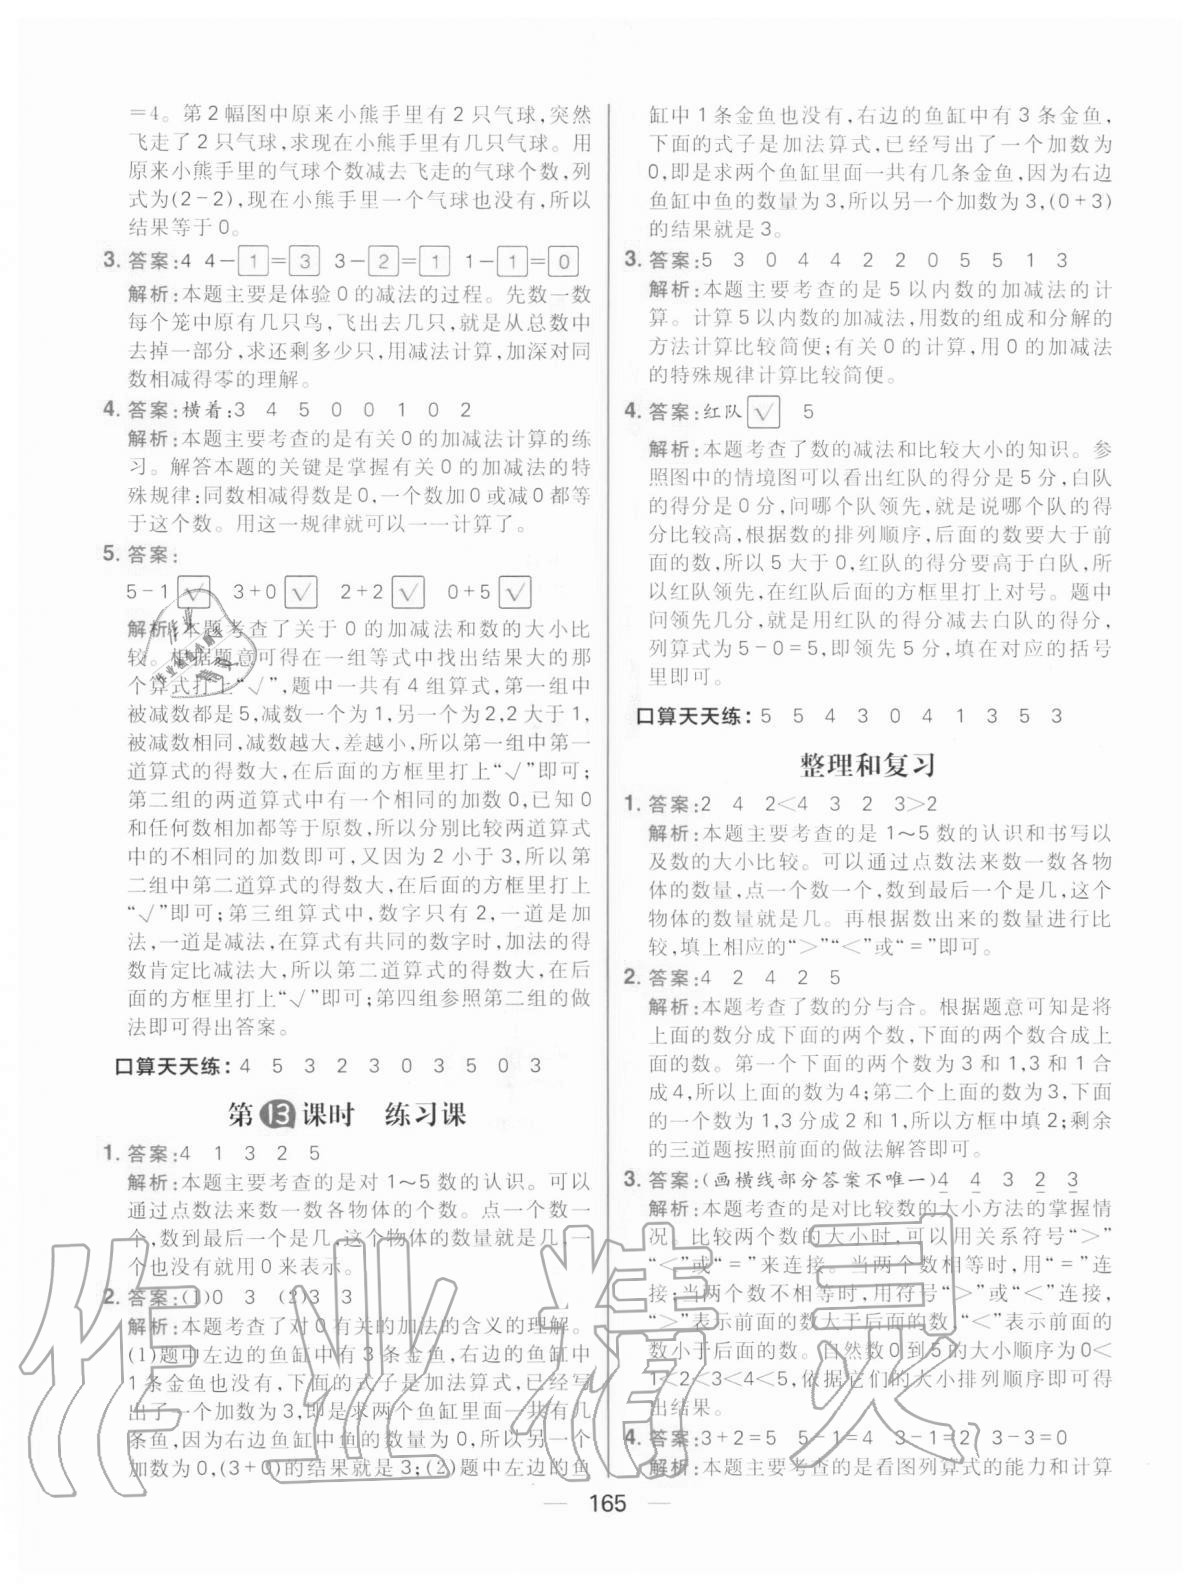 =4。第2幅图中原来小熊手里有2只气球,突然
飞走了2只气球,求现在小熊手里有几只气球。用
原来小熊手里的气球个数减去飞走的气球个数,列
式为(2-2),现在小熊手里一个气球也没有,所以
结果等于0。
3. 答案:4 4-1=3 3-2=1 1-1=0
解析:本题主要是体验0的减法的过程。先数一数
每个笼中原有几只鸟,飞出去几只,就是从总数中
去掉一部分,求还剩多少只,用减法计算,加深对同
数相减得零的理解。
4. 答案:横着:3 4 5 0 0 1 0 2
解析:本题主要考查的是有关0的加减法计算的练
习。解答本题的关键是掌握有关0的加减法的特
殊规律:同数相减得数是0,一个数加0或减0都等
于这个数。用这一规律就可以一一计算了。
5. 答案:
5-1√ 3+0√ 2+2√ 0+5√
解析:本题考查了关于0的加减法和数的大小比
较。根据题意可得在一组等式中找出结果大的那
个算式打上“√”,题中一共有4组算式,第一组中
被减数都是5,减数一个为1,另一个为2,2大于1,
被减数相同,减数越大,差越小,所以第一组中第一
道算式的得数大,在后面的方框里打上“√”即可;
第二组的两道算式中有一个相同的加数0,已知0
和任何数相加都等于原数,所以分别比较两道算式
中的不相同的加数即可,又因为2小于3,所以第
二组中第二道算式的得数大,在后面的方框里打上
“√”即可;第三组算式中,数字只有2,一道是加
法,一道是减法,在算式有共同的数字时,加法的得
数肯定比减法大,所以第二道算式的得数大,在后
面的方框里打上“√”即可;第四组参照第二组的做
法即可得出答案。
口算天天练:4 5 3 2 3 0 3 5 0 3
第13课时 练习课
1. 答案:4 1 3 2 5
解析:本题主要考查的是对1~5数的认识。可以
通过点数法来数一数各物体的个数。点一个数一
个,数到最后一个是几,这个物体的数量就是几,一
个也没有就用0来表示。
2. 答案:(1)0 3 (2)3 3
解析:本题考查了对0有关的加法的含义的理解。
(1)题中左边的鱼缸中有3条金鱼,右边的鱼缸中
1条金鱼也没有,下面的式子是加法算式,已经写
出了一个加数为3,即是求两个鱼缸里面一共有几
条鱼,因为右边鱼缸中鱼的数量为0,所以另一个
加数为0,(3+0)的结果就是3;(2)题中左边的鱼
缸中1条金鱼也没有,右边的鱼缸中有3条金鱼,
下面的式子是加法算式,已经写出了一个加数为
0,即是求两个鱼缸里面一共有几条金鱼,因为右边
鱼缸中鱼的数量为3,所以另一个加数为3,(0+3)
的结果就是3。
3. 答案:5 3 0 4 4 2 2 0 5 5 1 3
解析:本题主要考查的是5以内数的加减法的计
算。计算5以内数的加减法,用数的组成和分解的
方法计算比较简便;有关0的计算,用0的加减法
的特殊规律计算比较简便。
4. 答案:红队√ 5
解析:本题考查了数的减法和比较大小的知识。参
照图中的情境图可以看出红队的得分是5分,白队
的得分是0分,问哪个队领先,就是说哪个队的得
分比较高,根据数的排列顺序,后面的数要大于前
面的数,所以5大于0,红队的得分要高于白队,所
以红队领先,在红队后面的方框里打上对号。题中
问领先几分,就是用红队的得分减去白队的得分,
列算式为5-0=5,即领先5分,填在对应的括号
里即可。
口算天天练:5 5 4 3 0 4 1 3 5 3
整理和复习
1. 答案:2 4 2<4 3 2 3>2
解析:本题主要考查的是1~5数的认识和书写以
及数的大小比较。可以通过点数法来数一数各物
体的数量,点一个数一个,数到最后一个是几,这个
物体的数量就是几。再根据数出来的数量进行比
较,填上相应的“>”“<”或“=”即可。
2. 答案:4 2 4 2 5
解析:本题考查了数的分与合。根据题意可知是将
上面的数分成下面的两个数,下面的两个数合成上
面的数。第一个下面的两个数为3和1,3和1合
成4,所以上面的数为4;第二个上面的数为3,下面
的一个数为1,3分成2和1,所以方框中填2;剩余
的三道题按照前面的做法解答即可。
3. 答案:(画横线部分答案不唯一)4 4 3 2 3
解析:本题考查的是对比较数的大小方法的掌握情
况。比较两个数的大小时,可以用关系符号“>”
“<”或“=”来连接。当两个数相等时,用“=”连
接;当两个数不相等时,用符号“>”或“<”连接,
“>”表示前面的数大于后面的数,“<”表示前面的
数小于后面的数。自然数0到5的大小顺序为0<
1<2<3<4<5,依据它们的大小排列顺序即可得
出结果。
4. 答案:3+2=5 5-1=4 3-1=2 3-3=0
解析:本题主要考查的是看图列算式的能力和计算
165
作业精灵